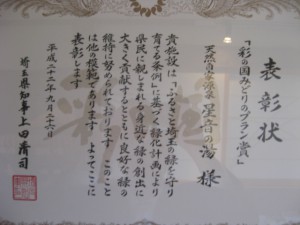 表彰状
「彩の国みどりのプラン賞」
天然戸田温泉 彩香の湯 様
貴施設は「ふるさと埼玉の緑を守り
育てる条例」に基づく緑化計画により
県民に親しまれる身近な緑の創出に
大きく貢献するとともに良好な緑の
維持に努められております このこと
は他の模範であります よってここに
表彰します
平成二十三年九月二十六日
埼玉県知事 上田清司